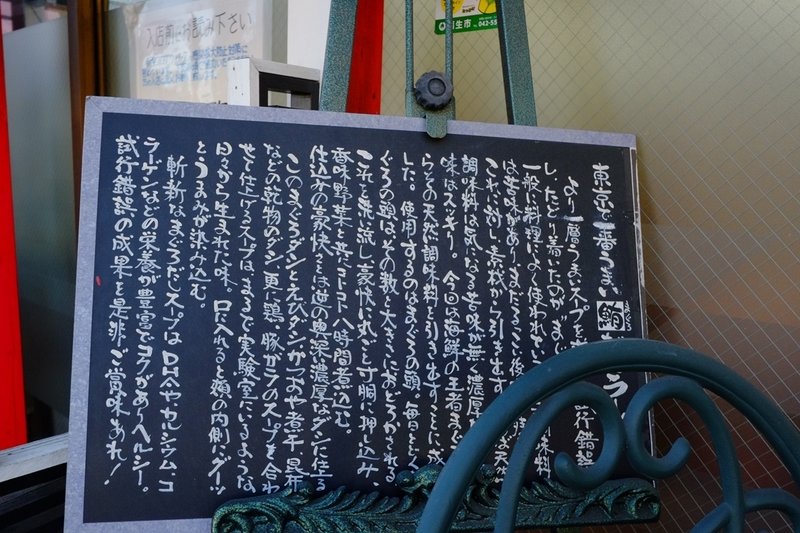 入店前にお読み下さい
福生市
042-55
東京で一番うまい 鮪 ラ
より一層うまいスープを 試行錯誤
し、たどり着いたのが、まぐ
一般に料理によく使われてい 調味料
は苦味があり、またなること、後
これに対し、素材から引き出す、 天然
調味料は気になる苦味が無く濃厚
味はスッキリ。今回は海鮮の王者まぐ
らその天然調味料を引き出す に成
した。使用するのはまぐろの頭。毎日とどく
ぐろの頭は、その数と大きさにおどろかされる
これを洗い流し豪快に丸ごと寸胴に押し込み、
香味野菜と共にコトコト八時間煮込む。
仕込みの豪快さとは逆の奥深い濃厚なダシに仕る
このまぐろダシとえびダシ、かつおや煮干、昆布
などの乾物のダシ、更に鶏、豚ガラのスープを合わ
せて仕上げるスープは、まるで実験室にるような
日々から生まれた味。口に入れると頬の内側にグーッ
とうまみが染み込む。
斬新なまぐろだしスープはDHAやカルシウム、コ
ラーゲンなどの栄養が豊富でコクがありヘルシー。
試行錯誤の成果を是非ご賞味あれ!